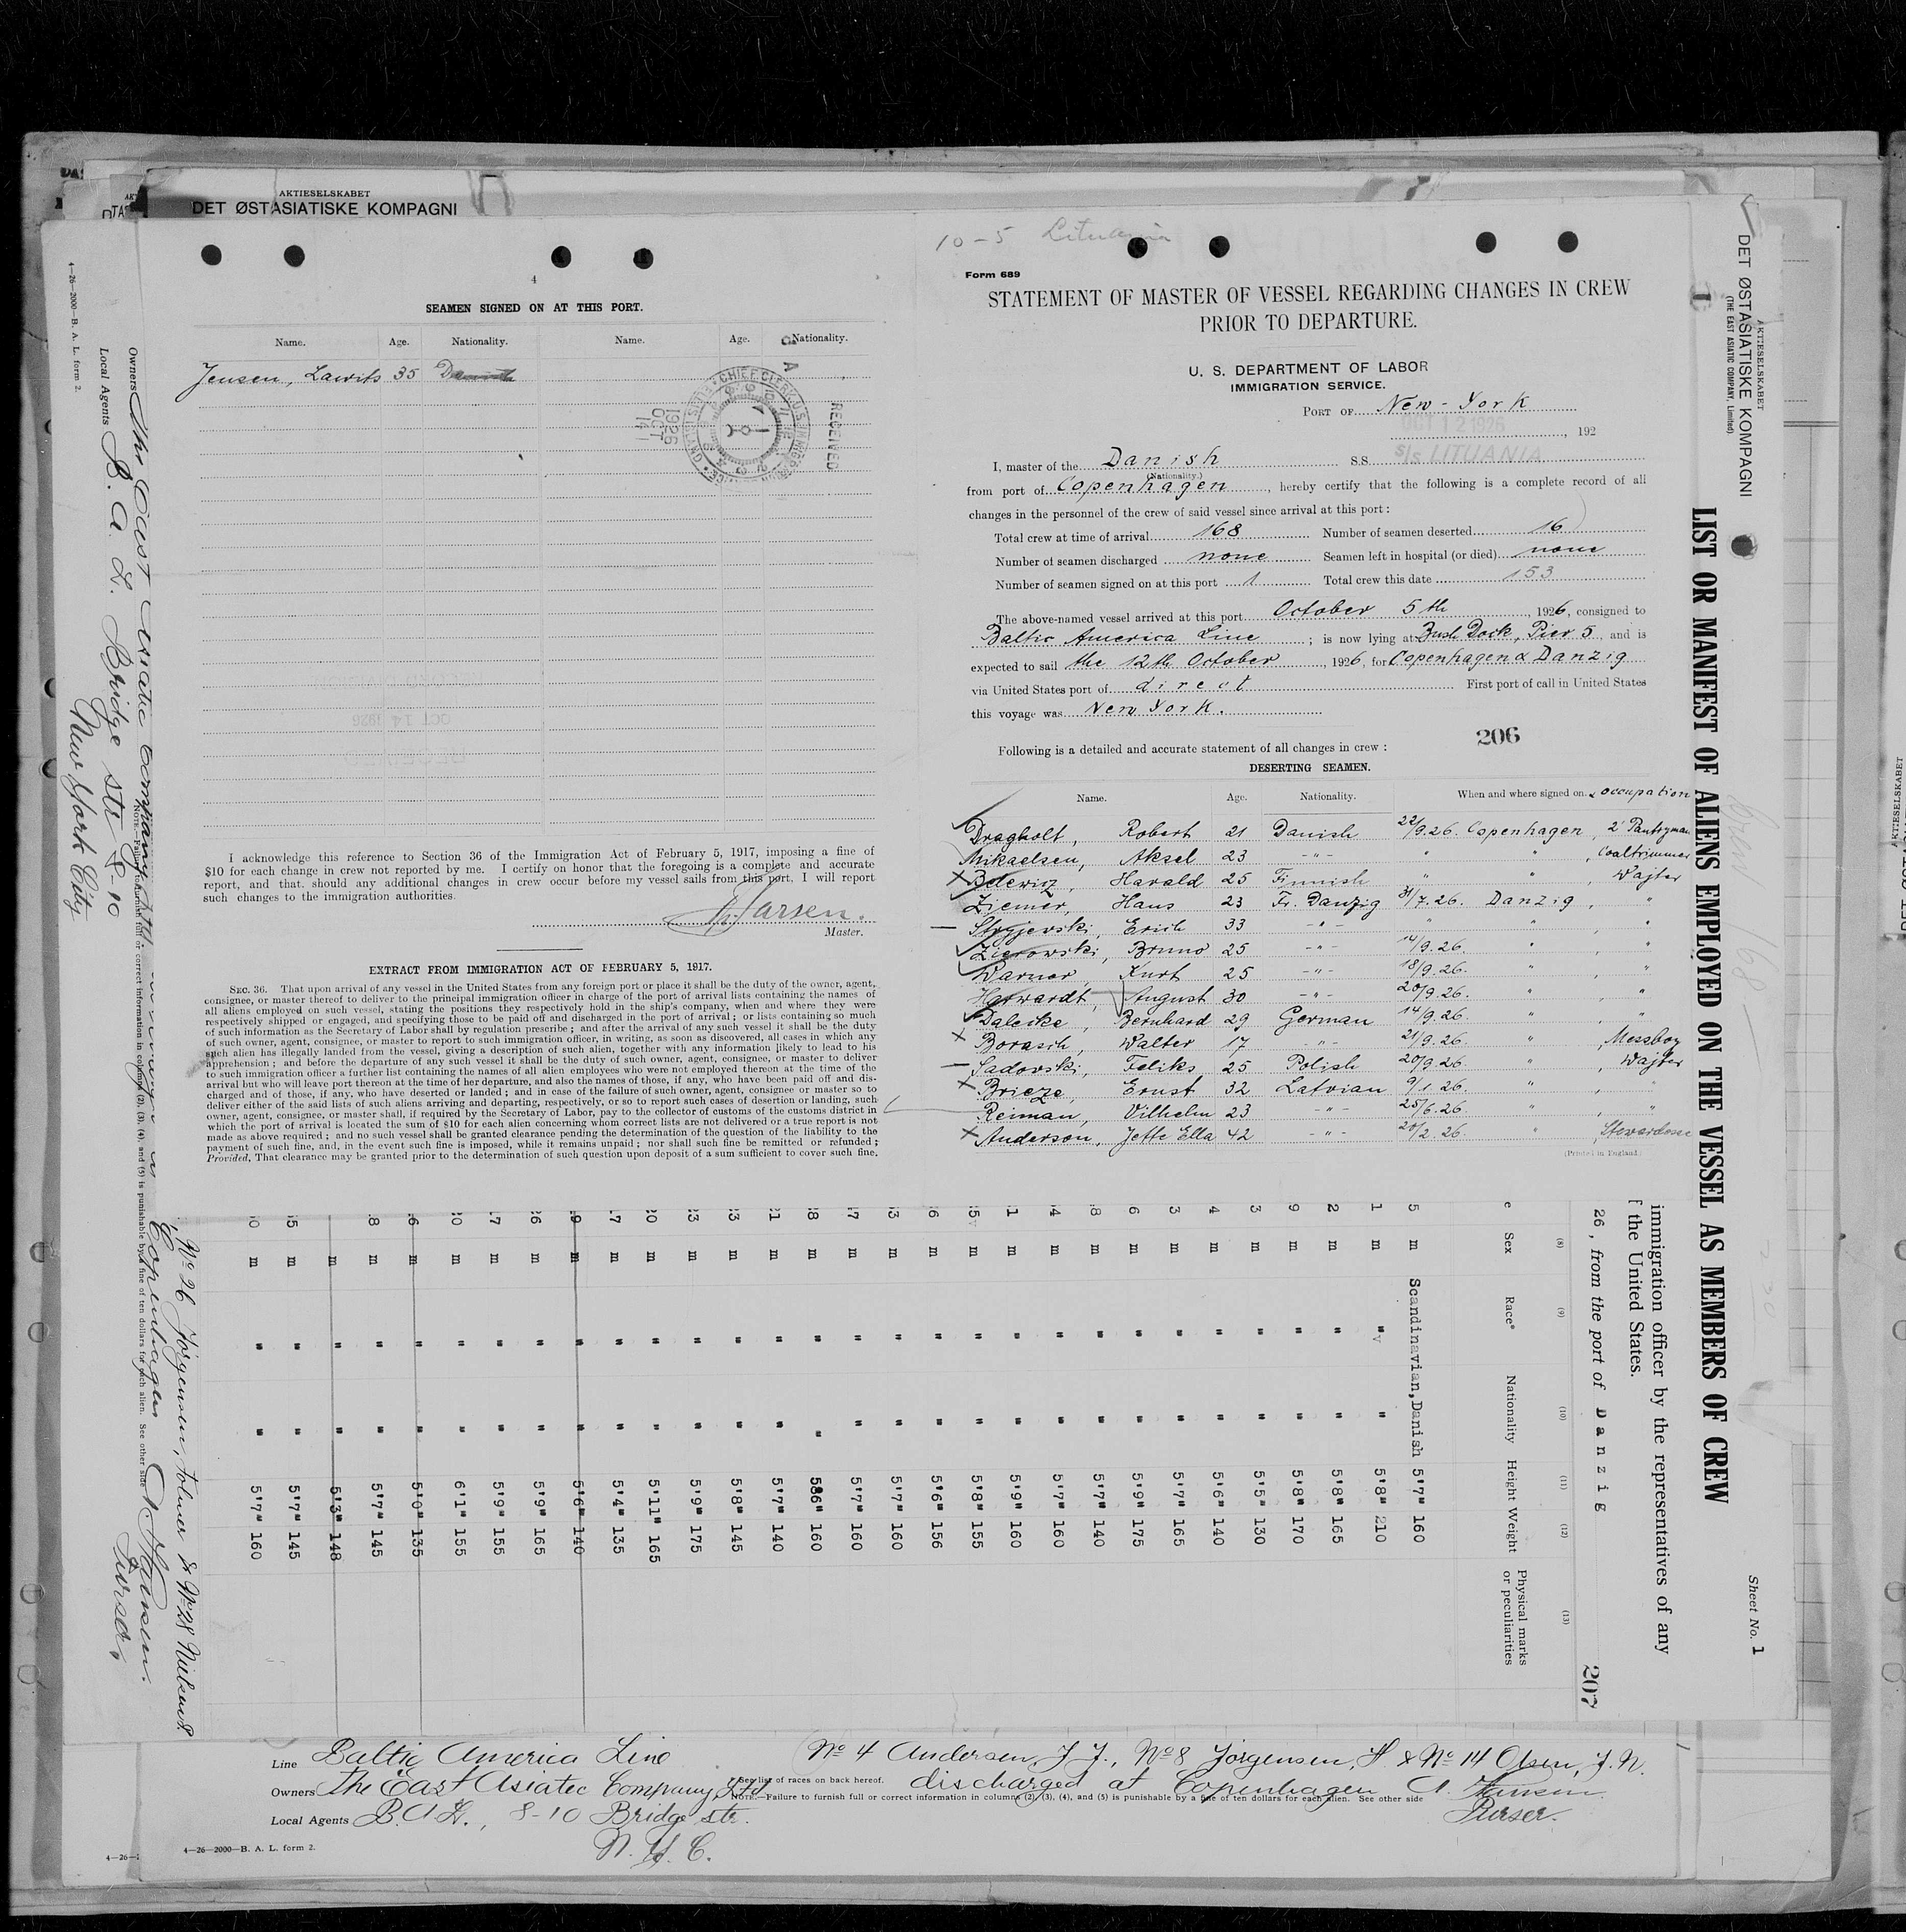 AKTIESELSKABET
DET ØSTASIATISKE KOMPAGNI
4
SEAMEN SIGNED ON AT THIS PORT.
Name. Age. Nationality. Name. Age. Nationality.
Jensen, Lawits 35 Danish
RECEIVED
1926
OCT
14
I acknowledge this reference to Section 36 of the Immigration Act of February 5, 1917, imposing a fine of
$10 for each change in crew not reported by me. I certify on honor that the foregoing is a complete and accurate
report, and that, should any additional changes in crew occur before my vessel sails from this port, I will report
such changes to the immigration authorities.
Master.
EXTRACT FROM IMMIGRATION ACT OF FEBRUARY 5, 1917.
SEC. 36. That upon arrival of any vessel in the United States from any foreign port or place it shall be the duty of the owner, agent,
consignee, or master thereof to deliver to the principal immigration officer in charge of the port of arrival lists containing the names of
all aliens employed on such vessel, stating the positions they respectively hold in the ship's company, when and where they were
respectively shipped or engaged, and specifying those to be paid off and discharged in the port of arrival; or lists containing so much
of such information as the Secretary of Labor shall by regulation prescribe; and after the arrival of any such vessel it shall be the duty
of such owner, agent, consignee, or master to report to such immigration officer, in writing, as soon as discovered, all cases in which any
such alien has illegally landed from the vessel, giving a description of such alien, together with any information likely to lead to his
apprehension; and before the departure of any such vessel it shall be the duty of such owner, agent, consignee, or master to deliver
to such immigration officer a further list containing the names of all alien employees who were not employed thereon at the time of the
arrival but who will leave port thereon at the time of her departure, and also the names of those, if any, who have been paid off and dis-
charged and of those, if any, who have deserted or landed; and in case of the failure of such owner, agent, consignee or master so to
deliver either of the said lists of such aliens arriving and departing, respectively, or so to report such cases of desertion or landing, such
owner, agent, consignee, or master, shall, if required by the Secretary of Labor, pay to the collector of customs of the customs district in
which the port of arrival is located the sum of $10 for each alien concerning whom correct lists are not delivered or a true report is not
made as above required; and no such vessel shall be granted clearance pending the determination of the question of the liability to the
payment of such fine, and, in the event such fine is imposed, while it remains unpaid; nor shall such fine be remitted or refunded;
Provided, That clearance may be granted prior to the determination of such question upon deposit of a sum sufficient to cover such fine.
10-5 Lituania
Form 689
STATEMENT OF MASTER OF VESSEL REGARDING CHANGES IN CREW
PRIOR TO DEPARTURE.
U. S. DEPARTMENT OF LABOR
IMMIGRATION SERVICE.
PORT OF New-York
OCT 12 1926, 192
I, master of the Danish SS. S/S LITUANIA
(Nationality.)
from port of Copenhagen, hereby certify that the following is a complete record of all
changes in the personnel of the crew of said vessel since arrival at this port:
Total crew at time of arrival 168 Number of seamen deserted 16
Number of seamen discharged none Seamen left in hospital (or died) none
Number of seamen signed on at this port 1 Total crew this date 153
The above-named vessel arrived at this port October 5th, 1926, consigned to
Baltic America Line; is now lying at Bush Dock, Pier 5, and is
expected to sail the 12th October, 1926, for Copenhagen & Danzig
via United States port of direct First port of call in United States
this voyage was New York.
206
Following is a detailed and accurate statement of all changes in crew:
DESERTING SEAMEN.
Name. Age. Nationality. When and where signed on. & occupation
Dragholt, Robert 21 Danish 22/9.26. Copenhagen, 2' Pantryman
Mikaelsen, Aksel 23 -"- " " , Coaltrimmer
Harald 25 Finnish " " , Wajter
Ziemer, Hans 23 Fr. Danzig 31/7.26. Danzig, "
Stryjevski, Erich 33 -"- " " , "
Zierowski, Bruno 25 -"- 14/9.26. " , "
Warner, Kurt 25 -"- 18/9.26. " , "
Herwardt, August 30 -"- 20/9.26. " , "
Daleike, Bernhard 29 German 14/9.26. " , "
Borasch, Walter 17 -"- 21/9.26. " , Messboy
Sadovski, Feliks 25 Polish 20/9.26. " , Wajter
Brieze, Ernst 32 Latvian 9/1.26. " , "
Reiman, Vilhelm 23 -"- 25/6.26. " , "
Anderson, Jette Ella 42 -"- 20/2.26. " , Stewardess
(Printed in England.)
AKTIESELSKABET
DET ØSTASIATISKE KOMPAGNI
(THE EAST ASIATIC COMPANY, Limited)
LIST OR MANIFEST OF ALIENS EMPLOYED ON THE VESSEL AS MEMBERS OF CREW
Sheet No. 1
immigration officer by the representatives of any
the United States.
26, from the port of Danzig
207
(8) (9) (10) (11) (12) (13)
Sex Race* Nationality Height Weight Physical marks or peculiarities
5 m Scandinavian, Danish 5'7" 160
1 m " " 5'8" 210
2 m " " 5'8" 165
9 m " " 5'8" 170
3 m " " 5'5" 130
4 m " " 5'6" 140
3 m " " 5'7" 165
6 m " " 5'9" 175
8 m " " 5'7" 140
4 m " " 5'7" 160
1 m " " 5'9" 160
5 m " " 5'8" 155
6 m " " 5'6" 156
3 m " " 5'7" 160
7 m " " 5'7" 160
8 m " " 160
1 m " " 5'7" 140
3 m " " 5'8" 145
3 m " " 5'9" 175
0 m " " 5'11" 165
7 m " " 5'4" 135
9 m " " 5'6" 140
6 m " " 5'9" 165
7 m " " 5'9" 155
0 m " " 6'1" 155
6 m " " 5'0" 135
8 m " " 5'7" 145
m " " 5'3" 148
5 m " " 5'7" 145
0 m " " 5'7" 160
No 26 Jörgensen, & No 28 Nielsen
Copenhagen
Purser
Owners The East Asiatic Company Ltd.
Local Agents B. A. L. Bridge str 8-10
New York City
4—26—2000—B. A. L. form 2.
Line Baltic America Line
Owners The East Asiatec Company, Ltd
Local Agents B.A.L., 8-10 Bridge str.
N. Y. C.
4—26—2000—B. A. L. form 2.
No 4 Andersen, J. J., No 8 Jörgensen, H. & No 14 Olsen, J. N.
*See list of races on back hereof.
discharged at Copenhagen A. Hansen
NOTE.—Failure to furnish full or correct information in columns (2), (3), (4), and (5) is punishable by a fine of ten dollars for each alien. See other side
Purser.